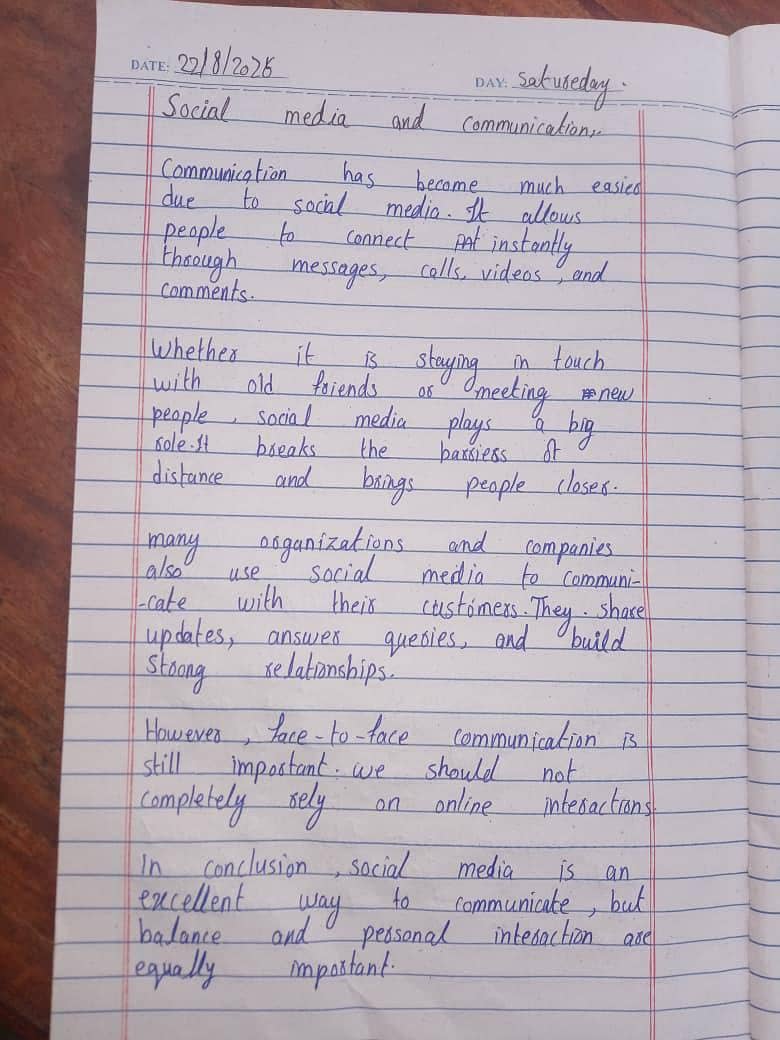 DATE: 22/8/2025
DAY: Satureday.
Social media and communication,.
Communication has become much easier
due to social media. It allows
people to connect instantly
through messages, calls, videos, and
comments.
Whether it is staying in touch
with old friends or meeting new
people, social media plays a big
role. It breaks the barriers of
distance and brings people closer.
many organizations and companies
also use social media to communi-
-cate with their customers. They. share
updates, answer queries, and build
strong relationships.
However, face-to-face communication is
still important. we should not
completely rely on online interactions
In conclusion, social media is an
excellent way to communicate, but
balance and personal interaction are
equally important.